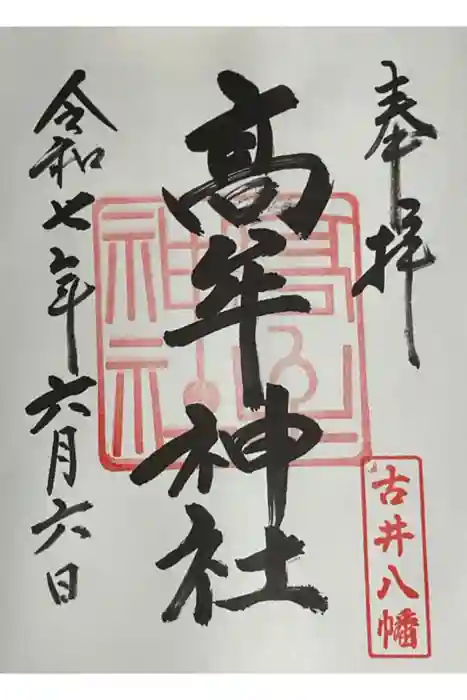 奉拝
古井八幡
高牟神社
令和七年六月六日